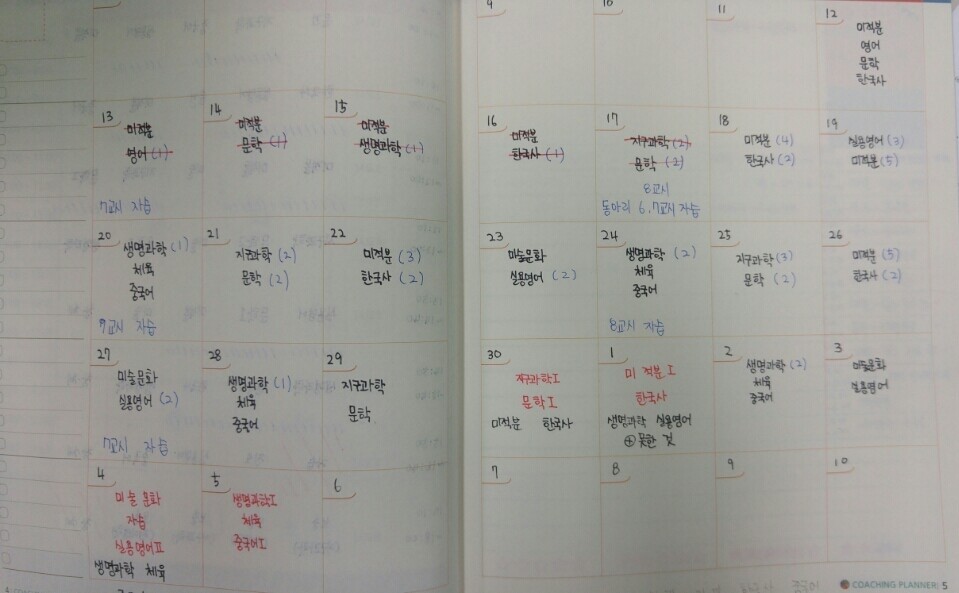 9
10
11
12
미적분
영어
문학
한국사
13
미적분
영어 (1)
7교시 자습
14
미적분
문학 (1)
15
미적분
생명과학 (1)
16
미적분
한국사 (1)
17
지구과학 (2)
문학 (2)
8교시
동아리 6,7교시 자습
18
미적분 (4)
한국사 (2)
19
실용영어 (3)
미적분 (5)
20
생명과학 (1)
체육
중국어
7교시 자습
21
지구과학 (2)
문학 (2)
22
미적분 (3)
한국사 (2)
23
미술문화
실용영어 (2)
24
생명과학 (2)
체육
중국어
8교시 자습
25
지구과학 (3)
문학 (2)
26
미적분 (5)
한국사 (2)
27
미술문화
실용영어 (2)
7교시 자습
28
생명과학 (1)
체육
중국어
29
지구과학
문학
30
지구과학 I
문학 I
미적분 한국사
1
미적분 I
한국사
생명과학 실용영어
⊕ 못한 것
2
생명과학 (2)
체육
중국어
3
미술문화
실용영어
4
미술 문화
자습
실용영어 II
생명과학 체육
5
생명과학 I
체육
중국어 I
6
7
8
9
10
COACHING PLANNER 5